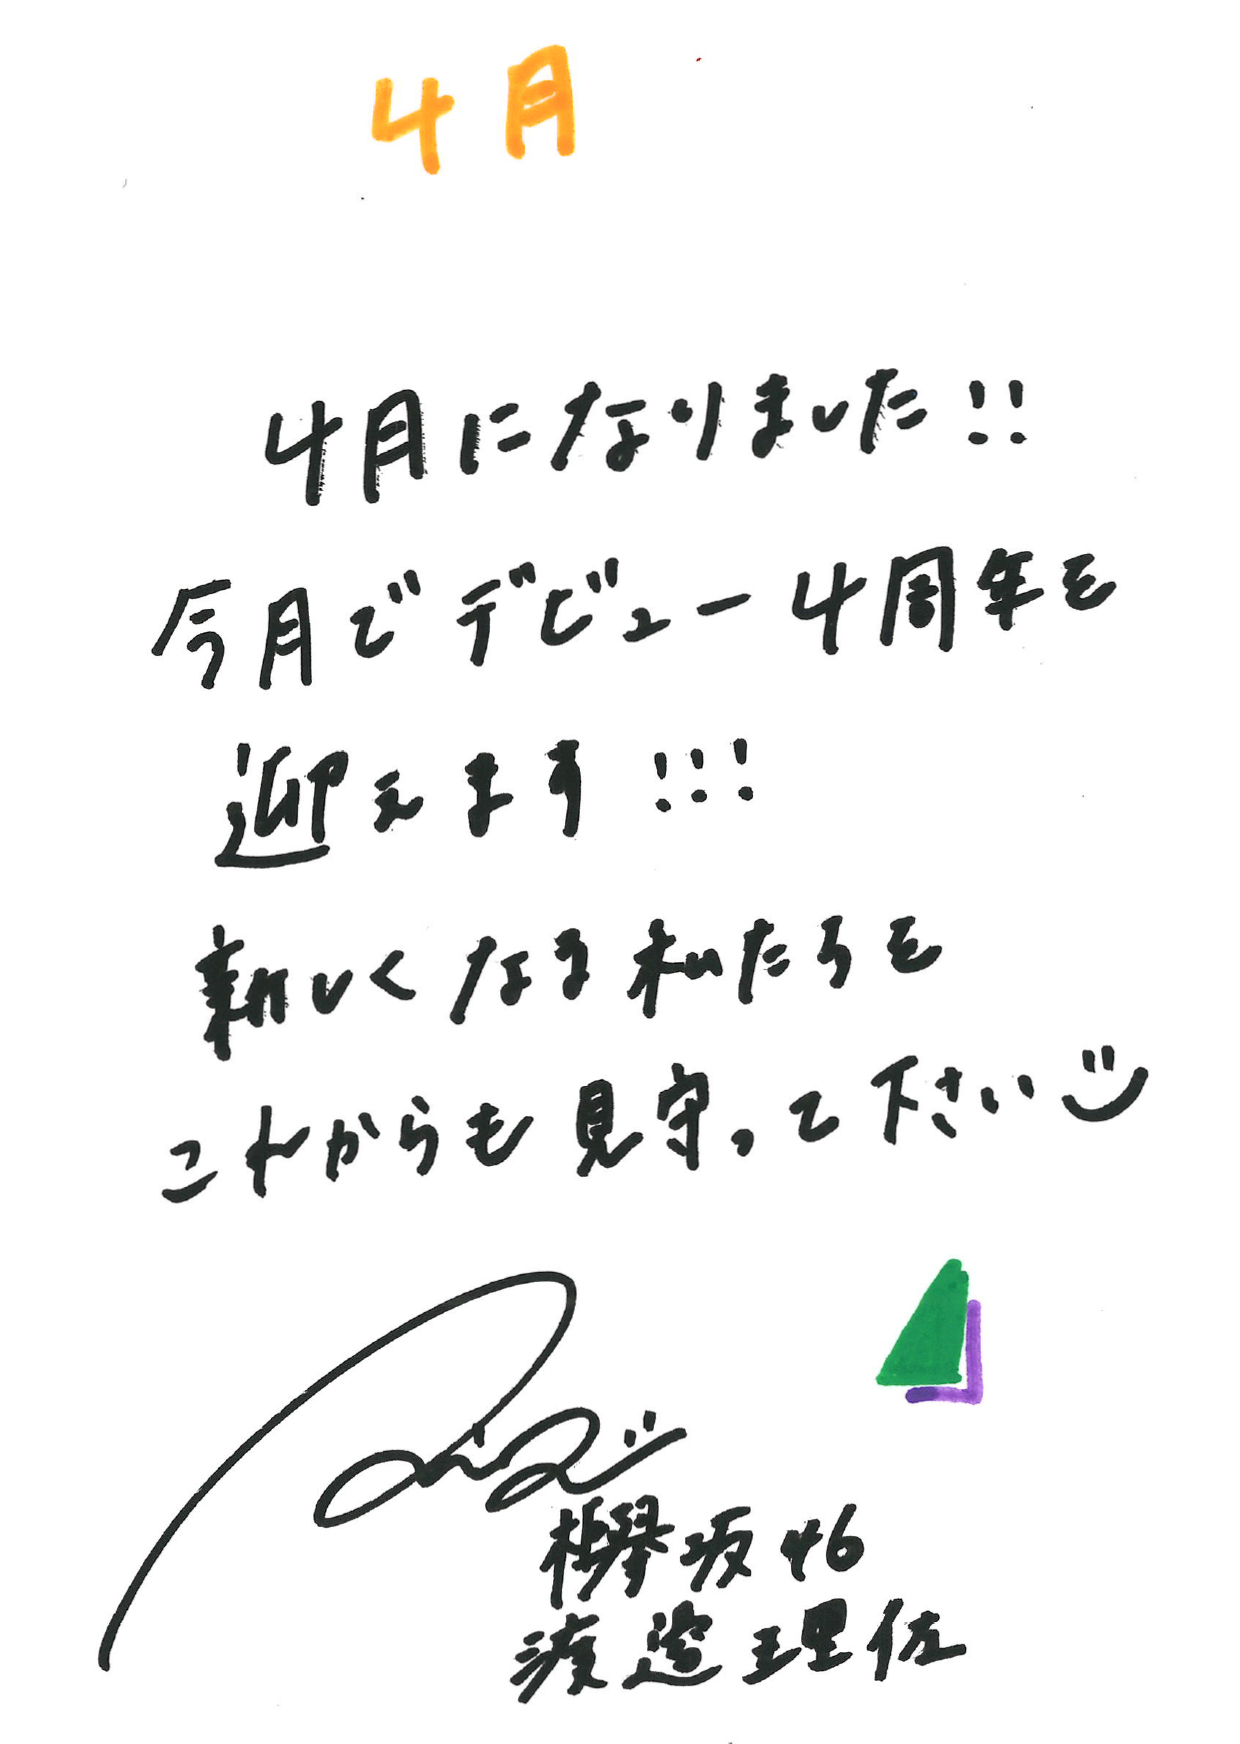 4月
4月になりました!!
今月でデビュー4周年を
迎えます!!!
新しくなる私たちを
これからも見守って下さい
欅坂46
渡邉理佐